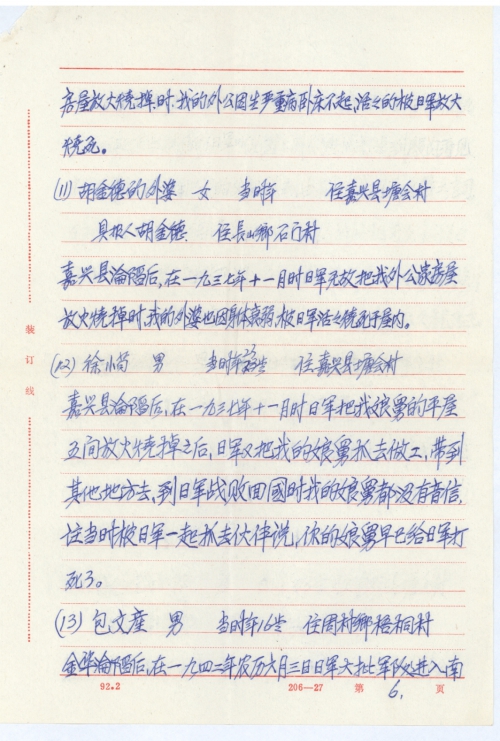 房屋放火烧掉时,我的外公因生严重病卧床不起,活活的被日军放火
烧死。
(11) 胡金德的外婆 女 当时年 住嘉兴县塘会村
具报人胡金德 住长山乡石门村
嘉兴县沦陷后,在一九三七年十一月时日军无故把我外公家房屋
放火烧掉时,我的外婆也因身体衰弱,被日军活活烧死于屋内。
(12) 徐小苟 男 当时年 岁 住嘉兴县塘会村
嘉兴县沦陷后,在一九三七年十一月时日军把我娘舅的平屋
五间放火烧掉之后,日军又把我的娘舅抓去做工,带到
其他地方去,到日军战败回國时我的娘舅都没有音信,
该当时被日军一起抓去伙伴说,你的娘舅早已给日军打
死了。
(13) 包文奎 男 当时年16岁 住周村鄉梧桐村
金华沦陷后,在一九四二年农历六月三日日军大批军队进入南
装订线
92.2 206—27 第 6. 页